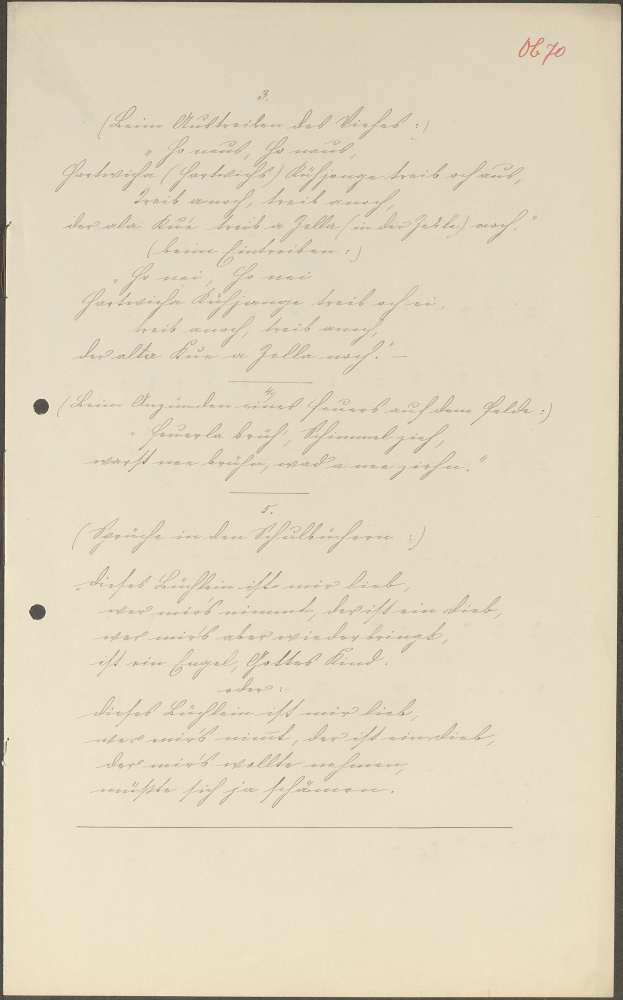 Ob 70
3.
(Beim Austreiben des Viehes :)
„Ho naus, Ho naus,
Hartwicha (Hartwichs) Kühjonge treib och aus,
Treib a noch, treib a noch,
der ala Kue treib a Zella (in der Zeile) noch."
(beim Eintreiben :)
„Ho nei, Ho nei
Hartwicha Kühjonge treib och ei,
treib a noch, treib a noch,
der alta Kue a Zella noch." —
4.
(Beim Anzünden eines Feuers auf dem Felde :)
„Feuerla brüh, Schimmel zieh,
warst nee brühn, warst nee ziehn."
5.
(Sprüche in den Schulbüchern :)
„Dieses Büchlein ist mir lieb,
wer mir's nimmt, der ist ein Dieb,
wer mir's aber wiederbringt,
ist ein Engel, Gottes Kind.
oder:
Dieses Büchlein ist mir lieb,
wer mir's nimt, der ist ein Dieb,
der mir's wollte nehmen,
müßte sich ja schämen.